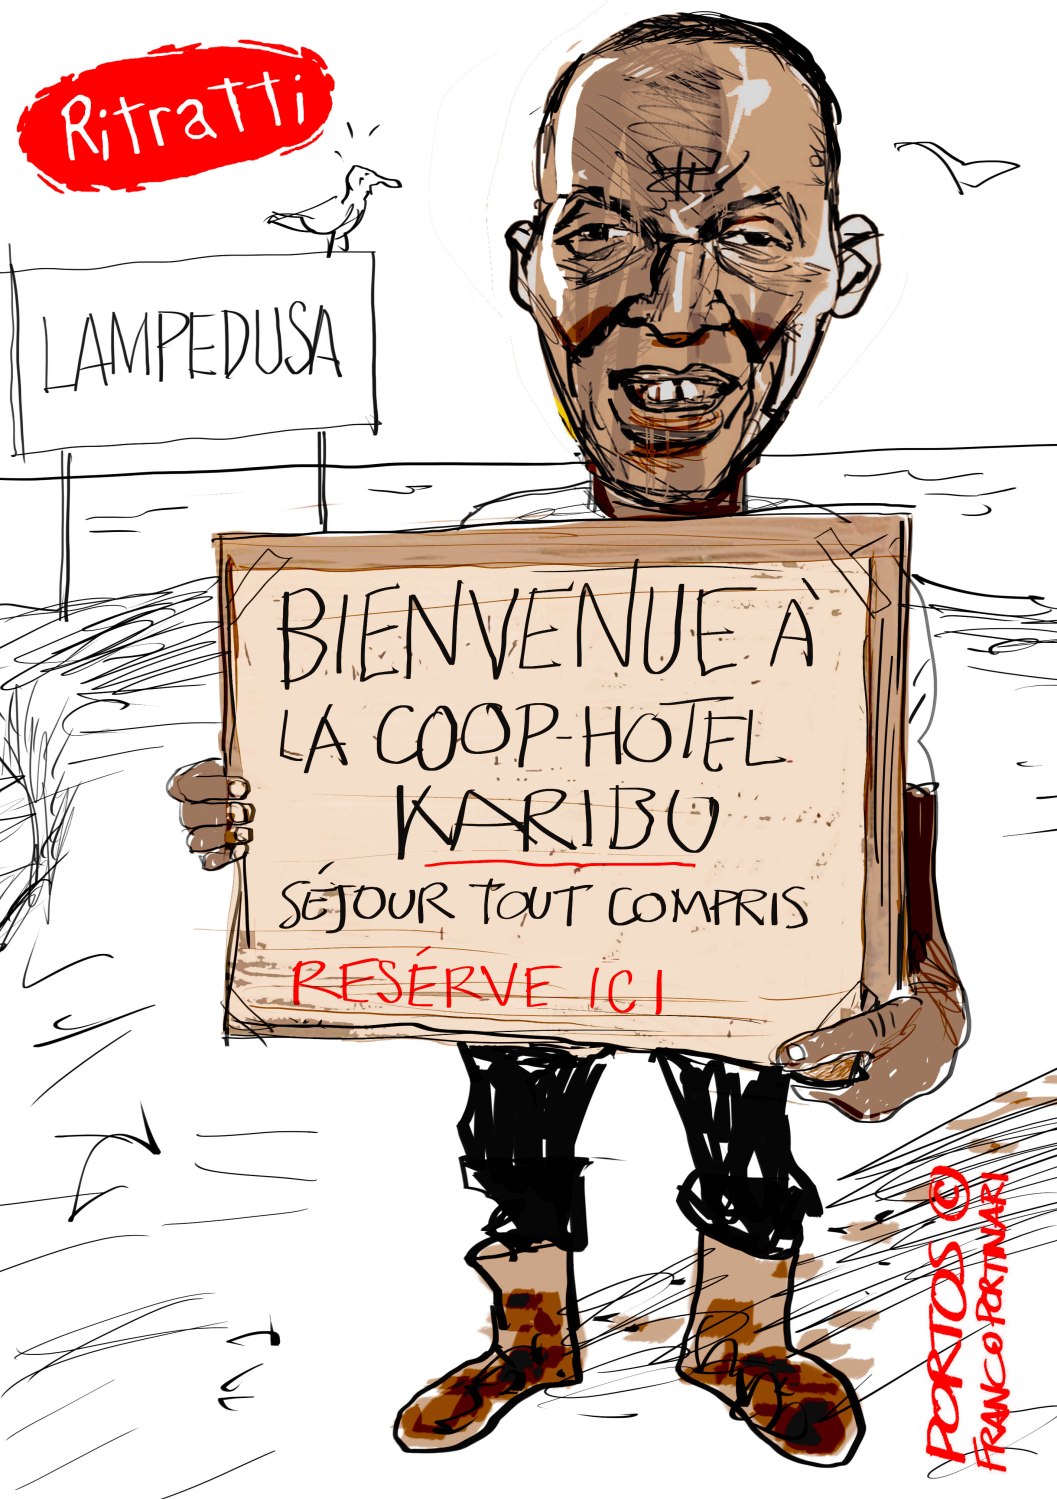 Ritratti
LAMPEDUSA
BIENVENUE À
LA COOP-HOTEL
KARIBU
SÉJOUR TOUT COMPRIS
RESÉRVE ICI
PORTOS ©
FRANCO PORTINARI